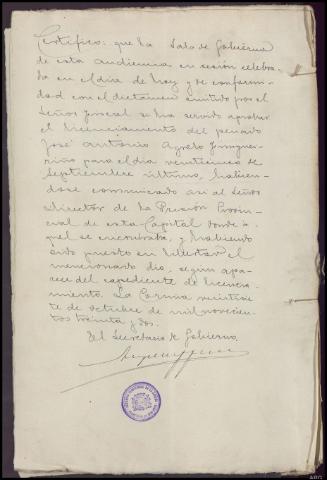 Certifico: que la Sala de Gobierno
de esta audiencia en sesión celebra-
da en el día de hoy y de conformi-
dad con el dictamen emitido por el
Señor Fiscal se ha servido aprobar
el licenciamiento del penado
José Antonio Agrelo
para el día veintinueve de
Septiembre último, habien-
dose comunicado así al Señor
Director de la Prisión Provin-
cial de esta Capital donde a-
quel se encontraba, y habiendo
sido puesto en libertad el
mencionado día, segun apa-
rece del expediente de licencia-
miento. La Coruña veintisie-
te de octubre de mil novecien-
tos treinta y dos.
El Secretario de Gobierno,